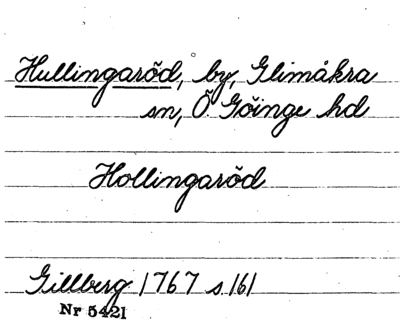 Hullingaröd, by, Glimåkra
sn, Ö. Göinge hd
Hollingaröd
Gillberg 1767 s. 161
Nr 5421